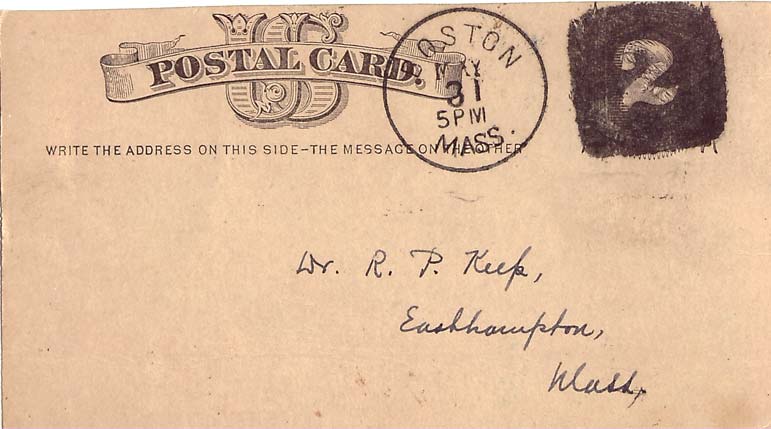 US
POSTAL CARD.
BOSTON
MAY
31
5PM
MASS.
2
WRITE THE ADDRESS ON THIS SIDE-THE MESSAGE ON THE OTHER
Dr. R. P. Keep,
Easthampton,
Mass,